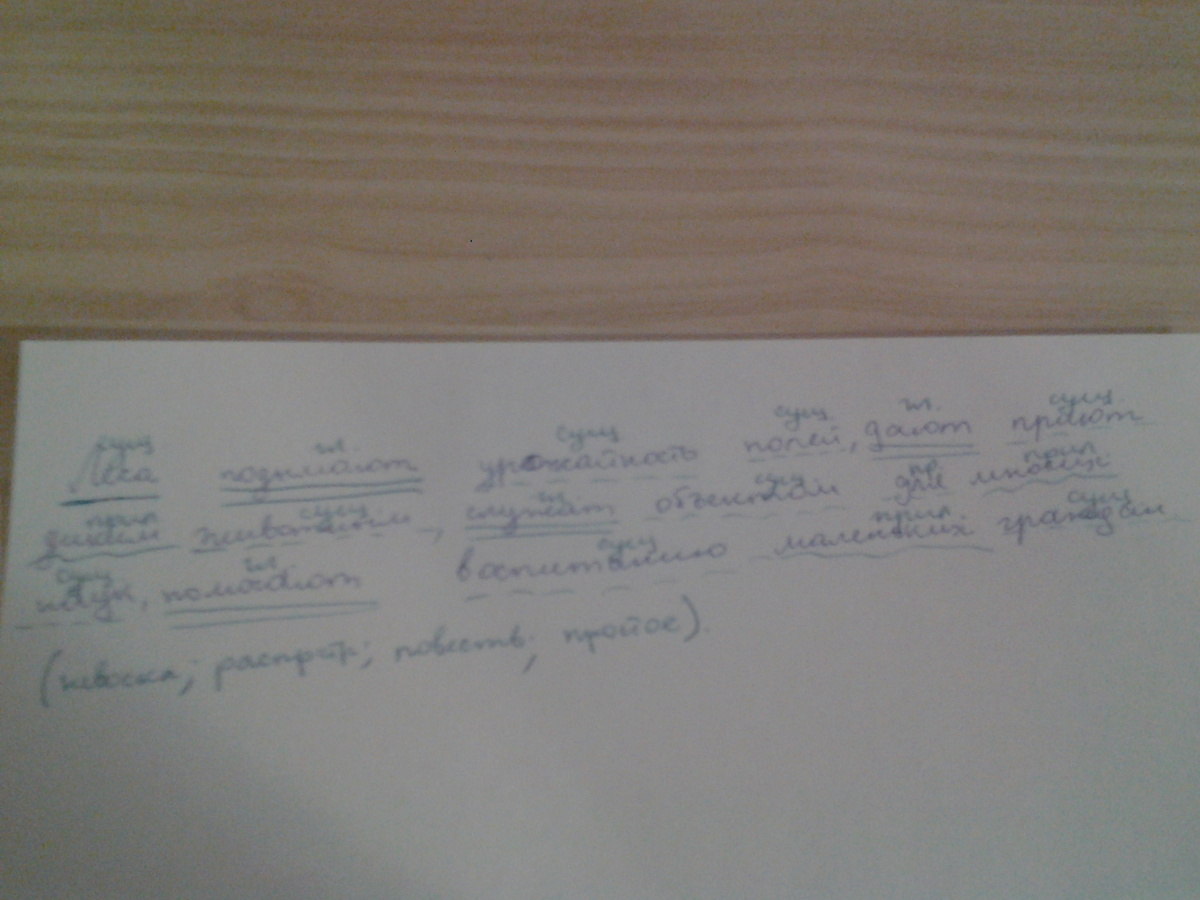 сущ гл. сущ сущ. гл. сущ.
Леса поднимают урожайность полей, дают приют
прил сущ. гл. сущ. пр прил
диким животным, служат объектом для многих
сущ гл. сущ прил. сущ
наук, помогают воспитанию маленьких граждан
(невоскл; распрстр; повеств; простое).